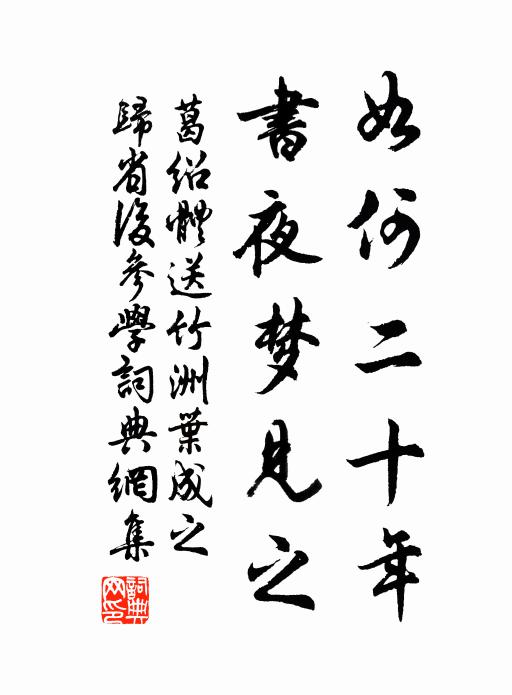 如何二十年
書夜梦見之
葛绍體送竹洲葉成之
歸省後參學詞典網集
詞典
网印